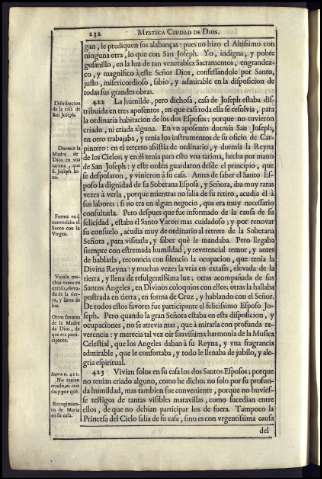 232 MYSTICA CIUDAD DE DIOS.
gan, le prediquen sus alabanças: pues no hizo el Altissimo con
ninguna otra, lo que con San Joseph. Yo, indigna, y pobre
gusanillo, en la luz de tan venerables Sacramentos, engrandez-
co, y magnifico à este Señor Dios, confessandole por Santo,
justo, misericordioso, sabio, y admirable en la disposicion de
todas sus grandes obras.
Distribucion de la casa de San Joseph.
422 La humilde, pero dichosa, casa de Joseph estaba dis-
tribuida en tres aposentos, en que casi toda ella se resolvia, para
la ordinaria habitacion de los dos Esposos; porque no tuvieron
criado, ni criada alguna. En vn aposento dormia San Joseph,
en otro trabajaba, y tenia los instrumentos de su oficio de Car-
pintero: en el tercero assistia de ordinario, y dormia la Reyna
de los Cielos, y en èl tenia para esto vna tarima, hecha por mano
de San Joseph: y este orden guardaron desde el principio, que
se desposaron, y vinieron à su casa. Antes de saber el Santo Es-
poso la dignidad de su Soberana Esposa, y Señora, iba muy raras
vezes à verla, porque mientras no salia de su retiro, acudia èl à
sus labores: si no era en algun negocio, que era muy necessario
consultarla. Pero despues que fue informado de la causa de su
felicidad, estaba el Santo Varon mas cuidadoso; y por renovar
su consuelo, acudia muy de ordinario al retrete de la Soberana
Señora, para visitarla, y saber què le mandaba. Pero llegaba
siempre con estremada humildad, y reverencial temor, y antes
de hablarla, reconocia con silencio la ocupacion, que tenia la
Divina Reyna: y muchas vezes la veìa en extasis, elevada de la
tierra, y llena de refulgentissima luz: otras acompañada de sus
Santos Angeles, en Divinos coloquios con ellos: otras la hallaba
postrada en tierra, en forma de Cruz, y hablando con el Señor.
De todos estos favores fue participante el felicissimo Esposo Jo-
seph. Pero quando la gran Señora estaba en esta disposicion, y
ocupaciones, no se atrevia mas, que à mirarla con profunda re-
verencia: y merecia tal vez oir suavissima harmonia de la Musica
Celestial, que los Angeles daban à su Reyna, y vna fragrancia
admirable, que le confortaba, y todo le llenaba de jubilo, y ale-
gria espiritual.
423 Vivian solos en su casa los dos Santos Esposos; porque
no tenian criado alguno, como he dicho no solo por su profun-
da humildad, mas tambien fue conveniente, porque no huvies-
se testigos de tantas visibles maravillas, como sucedian entre
ellos, de que no debian participar los de fuera. Tampoco la
Princesa del Cielo salia de su casa, sino es con vrgentissima causa
del